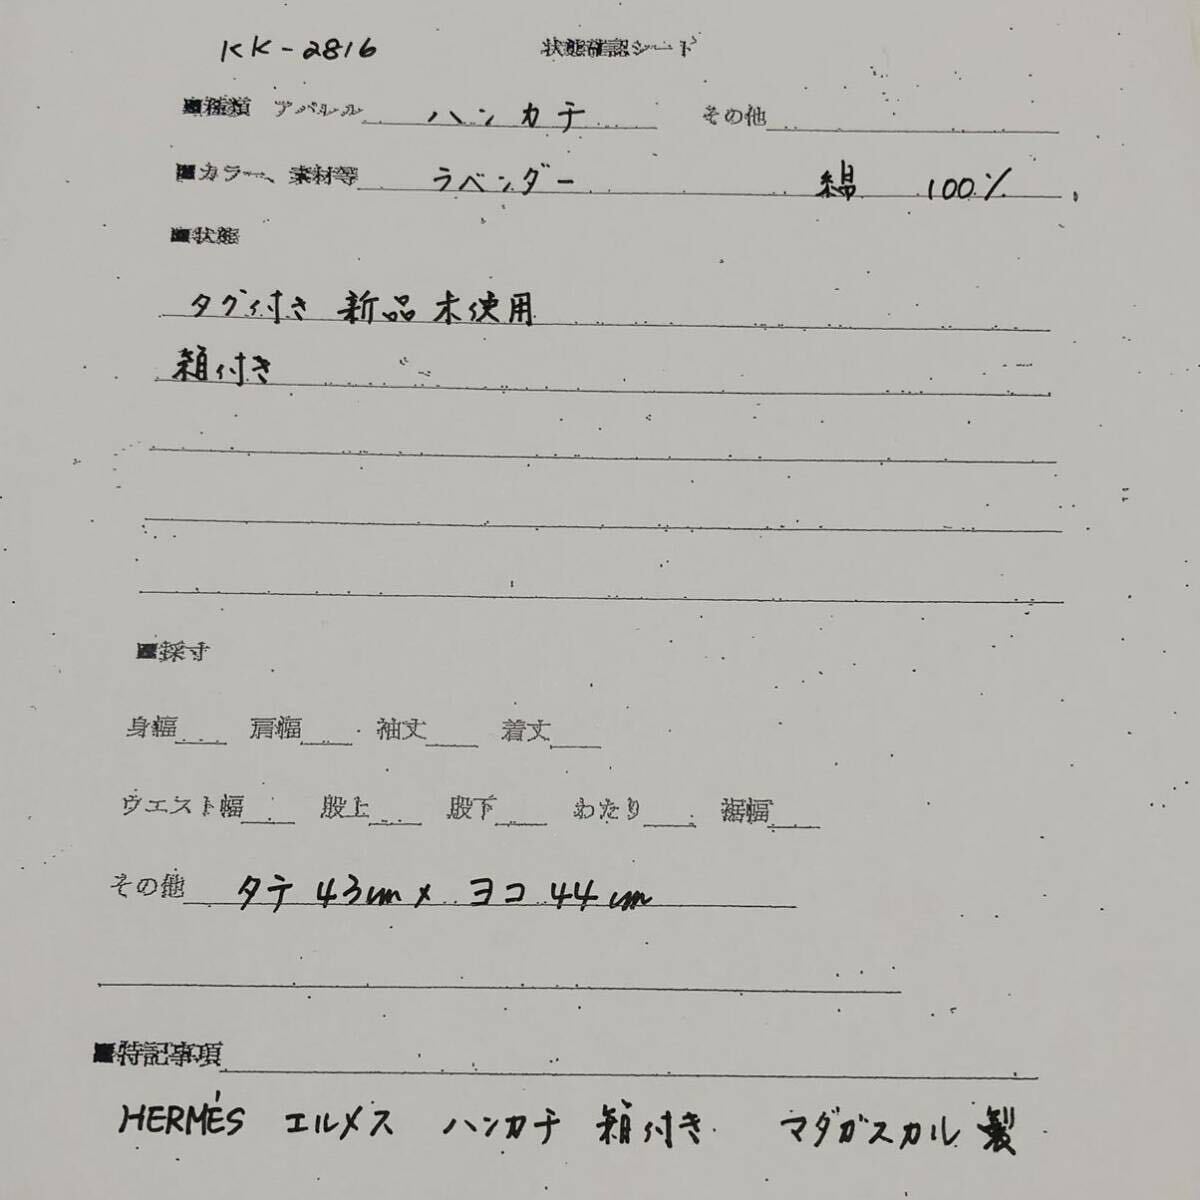 KK-2816 状態確認シート
■種類 アパレル ハンカチ その他
■カラー、素材等 ラベンダー 綿 100%
■状態
タグ付き 新品 未使用
箱付き
■採寸
身幅 肩幅 袖丈 着丈
ウエスト幅 股上 股下 わたり 裾幅
その他 タテ 43cm × ヨコ 44cm
■特記事項
HERMÉS エルメス ハンカチ 箱付き マダガスカル製